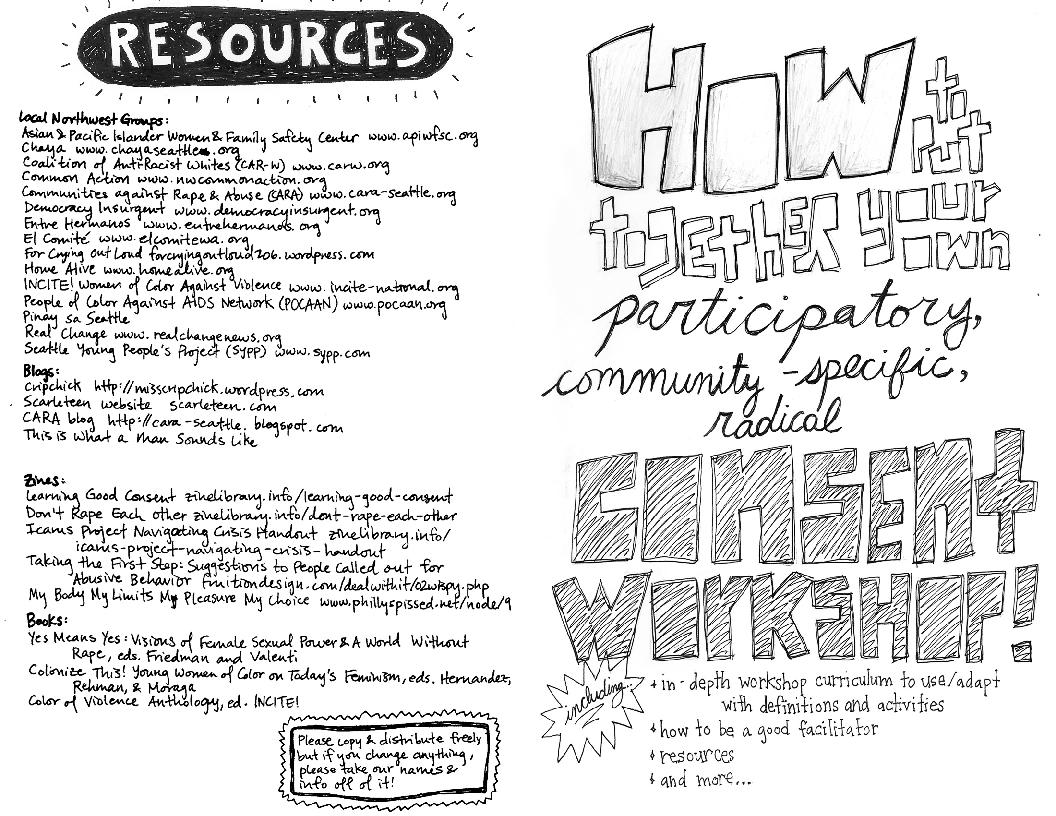 RESOURCES
Local Northwest Groups:
Asian & Pacific Islander Women & Family Safety Center www.apiwfsc.org
Chaya www.chayaseattle.org
Coalition of Anti-Racist Whites (CAR-W) www.carw.org
Common Action www.nwcommonaction.org
Communities against Rape & Abuse (CARA) www.cara-seattle.org
Democracy Insurgent www.democracyinsurgent.org
Entre Hermanos www.entrehermanos.org
El Comité www.elcomitewa.org
For Crying Out Loud forcryingoutloud206.wordpress.com
Home Alive www.homealive.org
INCITE! Women of Color Against Violence www.incite-national.org
People of Color Against AIDS Network (POCAAN) www.pocaan.org
Pinay sa Seattle
Real Change www.realchangenews.org
Seattle Young People's Project (SYPP) www.sypp.com
Blogs:
cripchick http://misscripchick.wordpress.com
Scarleteen website scarleteen.com
CARA blog http://cara-seattle.blogspot.com
This is What a Man Sounds Like
Zines:
Learning Good Consent zinelibrary.info/learning-good-consent
Don't Rape Each other zinelibrary.info/dont-rape-each-other
Icarus Project Navigating Crisis Handout zinelibrary.info/
icarus-project-navigating-crisis-handout
Taking the First Step: Suggestions to People Called out for
Abusive Behavior fruitiondesign.com/dealwithit/02wispy.php
My Body My Limits My Pleasure My Choice www.phillyspissed.net/node/9
Books:
Yes Means Yes: Visions of Female Sexual Power & A World Without
Rape, eds. Friedman and Valenti
Colonize This! Young Women of Color on Today's Feminism, eds. Hernandez,
Rehman, & Moraga
Color of Violence Anthology, ed. INCITE!
Please copy & distribute freely
but if you change anything,
please take our names &
info off of it!
HOW to
put
together your
own
participatory,
community-specific,
radical
CONSENT
WORKSHOP!
including
+ in-depth workshop curriculum to use/adapt
with definitions and activities
+ how to be a good facilitator
+ resources
+ and more...